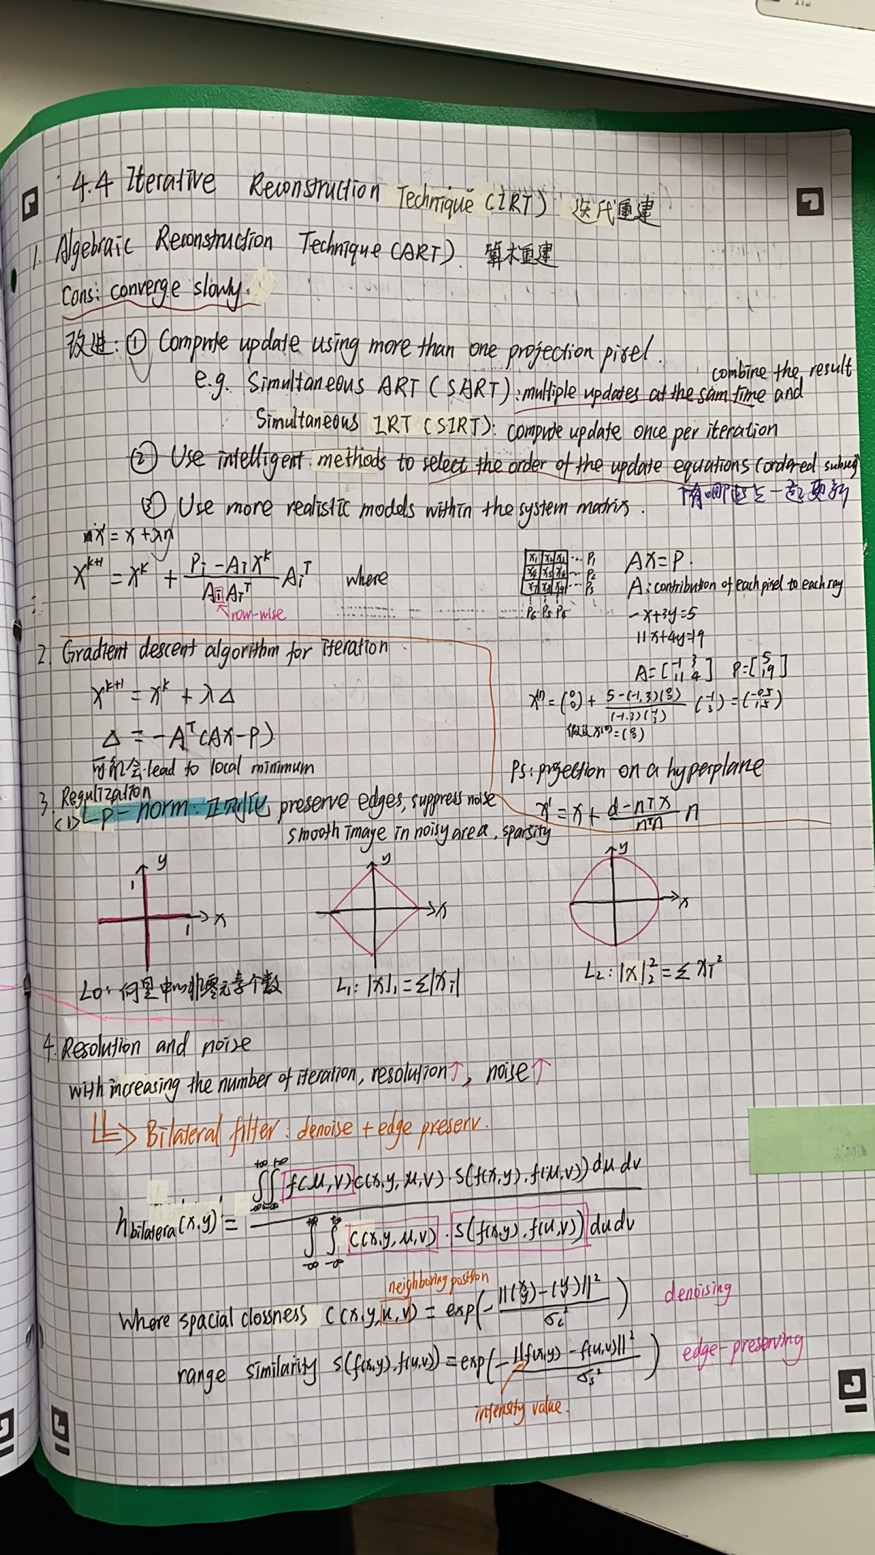 4.4 Iterative Reconstruction Technique (IRT) 迭代重建
1. Algebraic Reconstruction Technique (ART). 算术重建
Cons: converge slowly.
改进: ① Compute update using more than one projection pixel.
e.g. Simultaneous ART (SART): multiple updates at the sam time and combine the result
Simultaneous IRT (SIRT): compute update once per iteration
② Use intelligent methods to select the order of the update equations (ordered subset)
③ Use more realistic models within the system matrix.
x' = x + λn
X^{k+1} = X^k + \frac{P_i - A_i X^k}{A_i A_i^T} A_i^T where
row-wise
x1 x2 x3 ... P1
x4 x5 x6 ... P2
x7 x8 x9 ... P3
P6 P5 P4
AX = P.
A: contribution of each pixel to each ray
-x+3y=5
11x+4y=19
A = [-1 3; 11 4] P = [5; 19]
X^{(1)} = (0 0) + \frac{5-(-1,3)(0 0)}{(-1,3)(-1 3)} (-1 3) = (-0.5 1.5)
假设 X^{(0)} = (0 0)
Ps: projection on a hyperplane
x' = x + \frac{d - n^T x}{n^T n} n
2. Gradient descent algorithm for iteration
X^{k+1} = X^k + λΔ
Δ = -A^T(AX-P)
可能会 lead to local minimum
3. Regulization
(1) Lp-norm: 正则化 preserve edges, suppress noise
smooth image in noisy area, sparsity
y 1 1 x
y x
y x
L0: 向量中的非零元素个数
L1: |X|_1 = Σ|X_i|
L2: |X|_2^2 = Σ X_i^2
4. Resolution and noise
with increasing the number of iteration, resolution↑, noise↑
⇒ Bilateral filter: denoise + edge preserv.
h_{bilatera}(x,y) = \frac{\int_{-∞}^{+∞}\int_{-∞}^{+∞} f(μ,v) c(x,y,μ,v) · s(f(x,y), f(μ,v)) dμ dv}{\int_{-∞}^{+∞}\int_{-∞}^{+∞} c(x,y,μ,v) · s(f(x,y), f(μ,v)) dμ dv}
neighboring position
where spacial clossness c(x,y,u,v) = exp(-\frac{||(x y)-(u v)||^2}{σ_c^2}) denoising
range similarity s(f(x,y), f(u,v)) = exp(-\frac{||f(x,y) - f(u,v)||^2}{σ_s^2}) edge-preserving
intensity value.